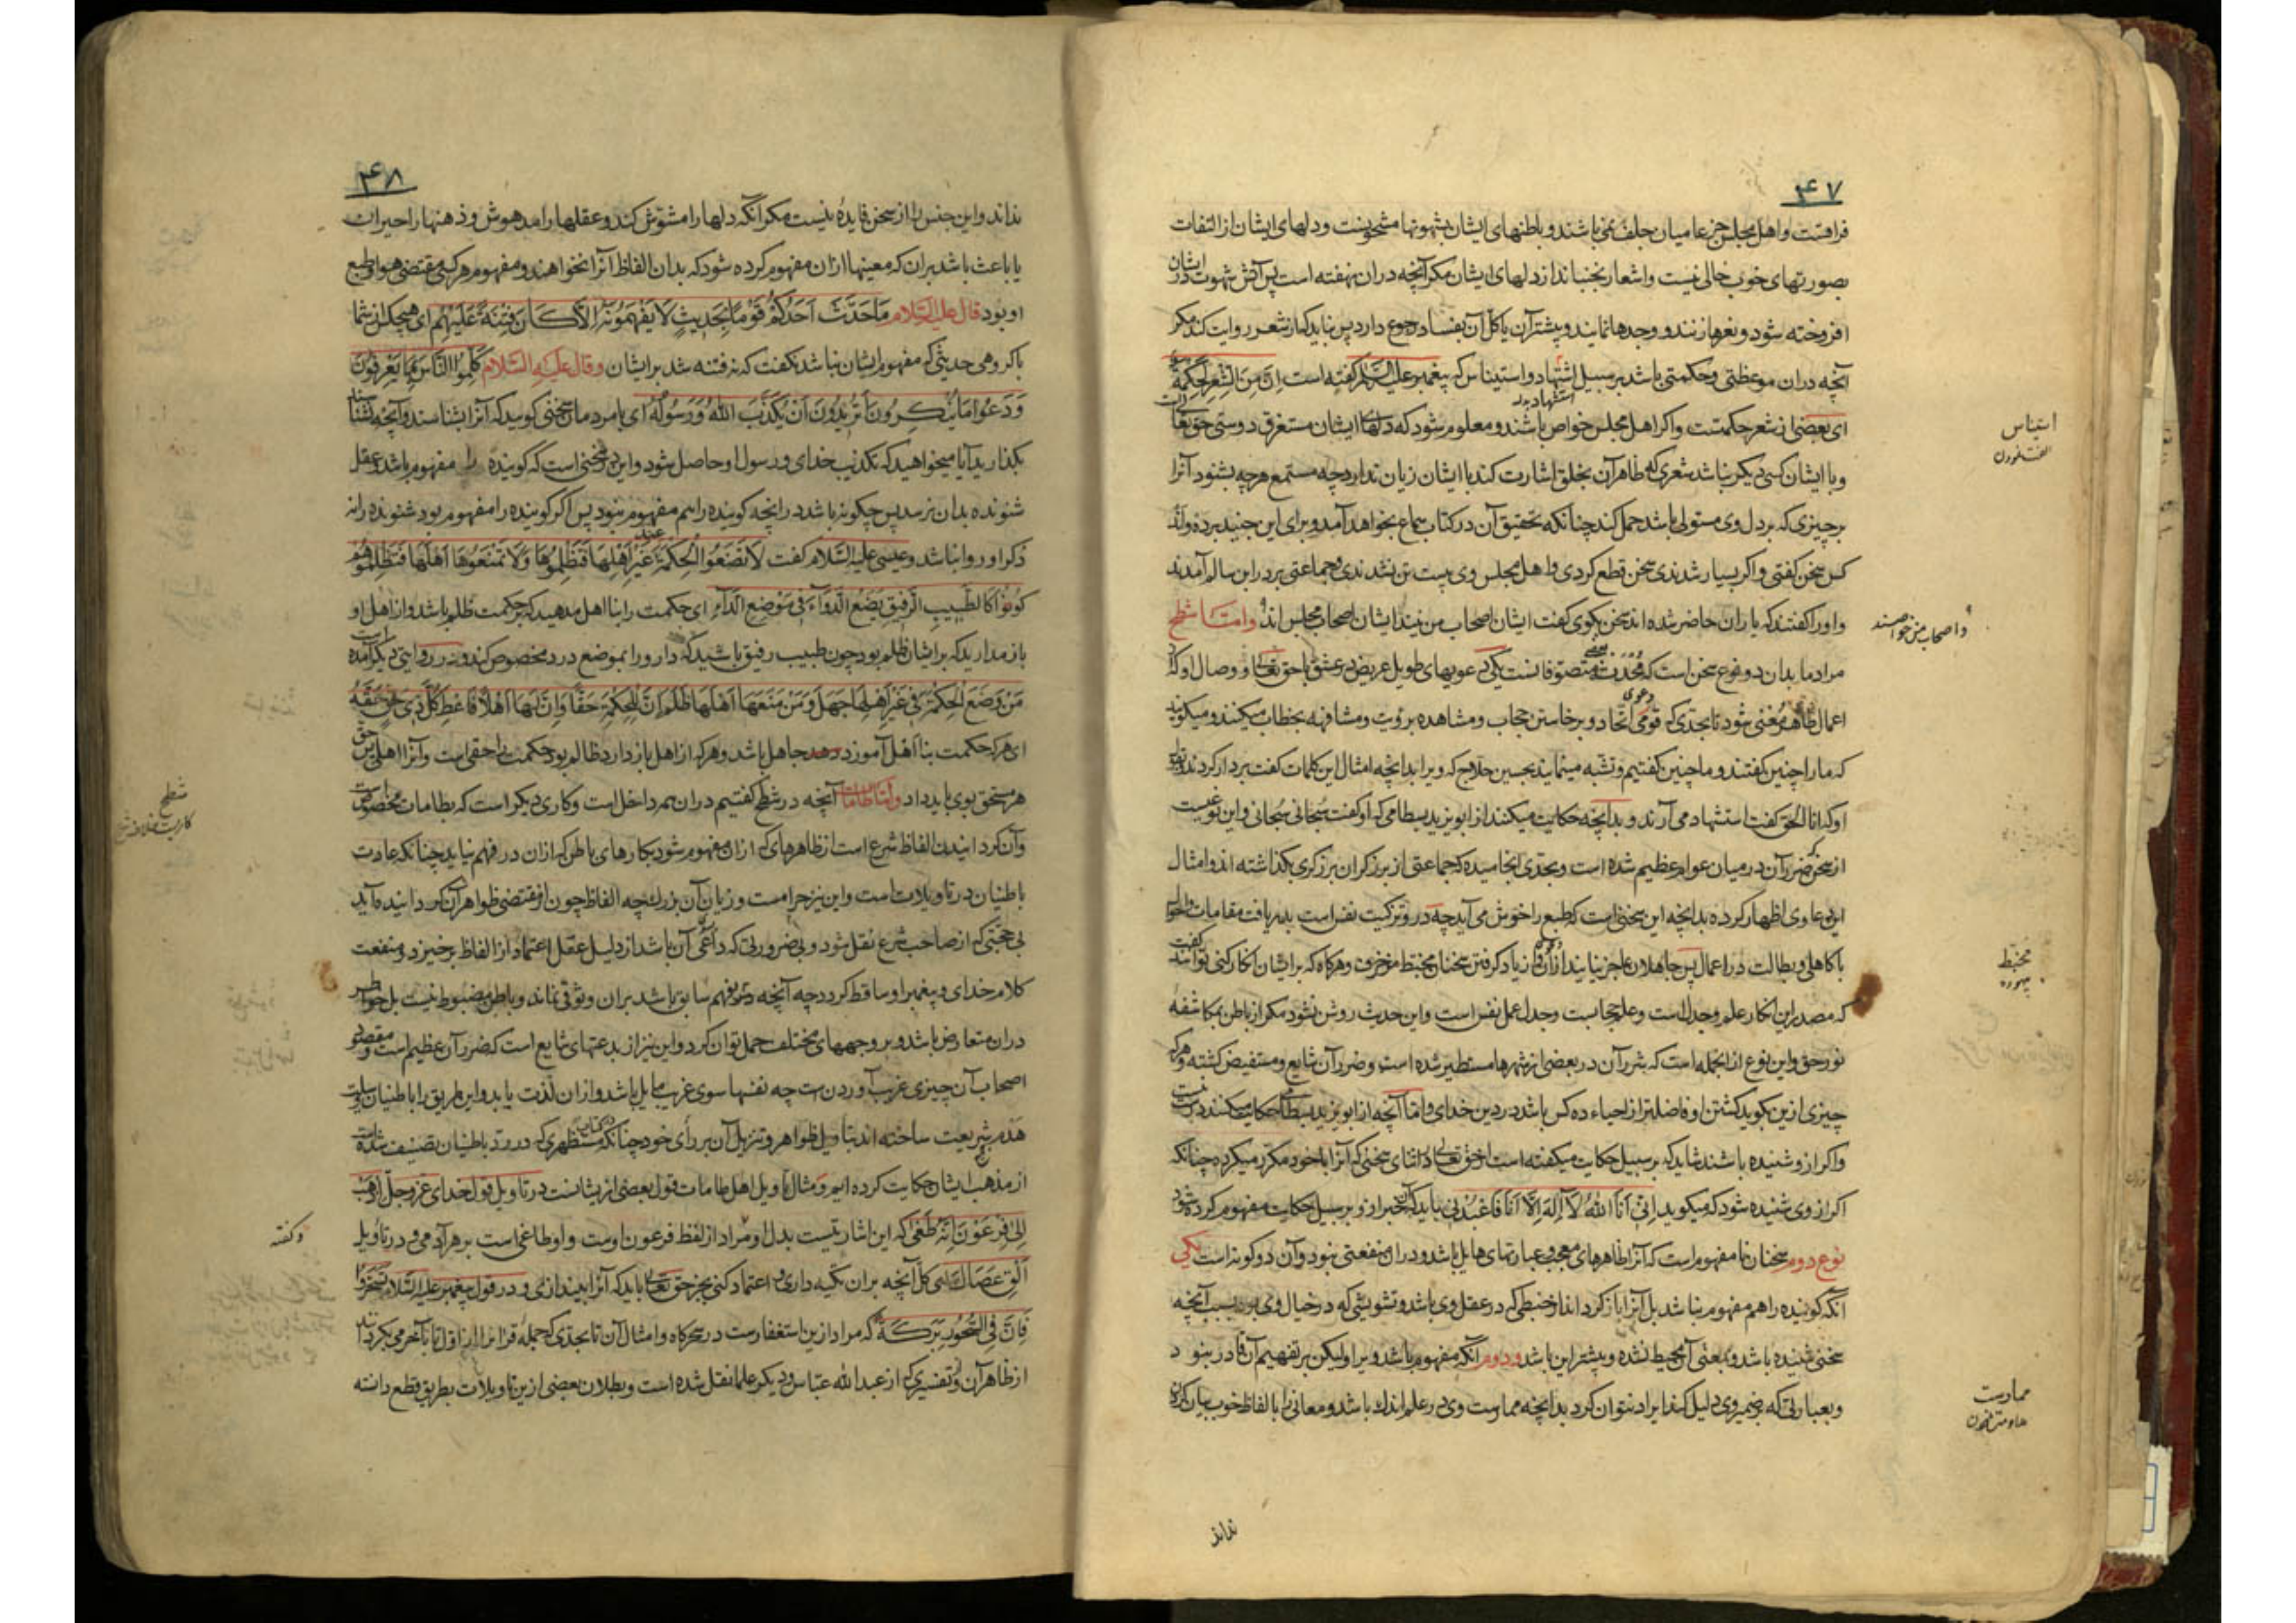 ۴۷
فراقست و اهل مجلس جز عامیان جلف نمی باشند و باطنهای ایشان بشهوتها مشحونست و دلهای ایشان از التفات
بصورتهای خوب خالی نیست و اشعار نجنباند از دلهای ایشان مکر آنچه در ان نهفته است پس آتش شهوت در ایشان
افروخته شود و نعرها زنند و وجدها نمایند و بیشتر آن یا کل آن بفساد رجوع دارد پس نباید که از شعر روایت کند مکر
آنچه در ان موعظتی و حکمتی باشد بر سبیل استشهاد و استیناس که پیغمبر علیه السلام کفته است اِنَّ مِنَ الشِّعْرِ لَحِکْمَةً
ای بعضی از شعر حکمتست و اکر اهل مجلس خواص باشند و معلوم شود که دلهای ایشان مستغرق دوستی حق تعالی است
و با ایشان کسی دیکر نباشد شعری که ظاهر آن بخلق اشارت کند با ایشان زیان ندارد چه مستمع هر چه بشنود آنرا
بر چیزی که بر دل وی مستولی باشد حمل کند چنانکه تحقیق آن در کتاب سماع بخواهد آمد و برای این جنید بر ده و اند
کس سخن کفتی و اکر بسیار شدندی سخن قطع کردی و اهل مجلس وی بیست تن نشدندی و جماعتی بر در ابن سالم آمدند
و او را کفتند که یاران حاضر شده اند سخن بکوی کفت ایشان اصحاب من نیند ایشان اصحاب مجلس اند وامّا شطح
مراد ما بدان دو نوع سخن است که مُحْدَث متصوّفانست یکی دعویهای طویل عریض در عشق با حق تعالی و وصال او که از
اعمال ظاهر مُغنی شود تا بحدّی که قومی دعوی اتّحاد و برخاستن حجاب و مشاهده برؤیت و مشافهه بخطاب میکنند و میکویند
که ما را چنین کفتند و ما چنین کفتیم و تشبه مینمایند بحسین حلاج که ویرا بدانچه امثال این کلمات کفت بر دار کردند و بقول
او که انا الحق کفت استشهاد می آرند و بدانچه حکایت میکنند از ابو یزید بسطامی که او کفت سبحانی سبحانی و این نوعیست
از سخن که ضرر آن در میان عوام عظیم شده است و بحدّی انجامیده که جماعتی از برزکران برزکری بکذاشته اند و امثال
این دعاوی اظهار کرده بدانچه این سخنی است که طبع را خوش می آید چه در و تزکیت نفس است بدریافت مقامات و احوال
با کاهلی و بطالت در اعمال پس جاهلان عاجز نیایند از ان و از یاد کرفتن سخنان مخبّط مزخرف و هرکاه که بر ایشان انکار کنی توانند کفت
که مصدر این انکار علم و جدل است و علم حجابست و جدل عمل نفس است و این حدیث روشن نشود مکر از باطن بمکاشفه
نور حق و این نوع از انجمله است که شرر آن در بعضی از شهرها مستطیر شده است و ضرر آن شایع و مستفیض کشته و هرکه
چیزی ازین بکوید کشتن او فاضلتر از احیاء ده کس باشد در دین خدای و امّا آنچه از ابو یزید بسطامی حکایت میکنند درست نیست
و اکر ازو شنیده باشند شاید که بر سبیل حکایت میکفته است از حق تعالی در اثنای سخنی که آنرا با خود مکرّر میکرده چنانکه
اکر از وی شنیده شود که میکوید اِنّی اَنَا اللهُ لَا اِلٰهَ اِلَّا اَنَا فَاعْبُدْنی باید که آن خبر ازو بر سبیل حکایت مفهوم کرده شود
نوع دوم سخنان نا مفهوم است که آنرا ظاهرهای معجب و عبارتهای هایل باشد و در ان منفعتی نبود و آن دو کونه است یکی
آنکه کوینده را هم مفهوم نباشد بل آنرا باز کرداند از خبطی که در عقل وی باشد و تشویشی که در خیال وی بود بسبب آنچه
سخنی شنیده باشد و بمعنی آن محیط نشده و بیشتر این باشد و دوم آنکه مفهوم باشد ویرا ولیکن بر تفهیم آن قادر نبود
و بعبارتی که بر ضمیر وی دلیل کند ایراد نتوان کرد بدانچه ممارست وی در علم اندک باشد و معانی را بالفاظ خوب بیان کردن
نداند
استیناس
و اصحاب من خواصند
مخبّط
بیهوده
ممارست
۴۸
نداند و این جنس را از سخن فایده نیست مکر آنکه دلها را مشوّش کند و عقلها را مدهوش و ذهنها را حیران
یا باعث باشد بران که معنیها از ان مفهوم کرده شود که بدان الفاظ آنرا نخواهند و مفهوم هر کسی مقتضی هوا و طبع
او بود قال علیه السّلام مَا حَدَّثَ اَحَدُکُمْ قَوْمًا بِحَدِیثٍ لَا یَفْهَمُونَهُ اِلَّا کَانَ فِتْنَةً عَلَیْهِمْ ای هیچکس از شما
با کروهی حدیثی که مفهوم ایشان نباشد نکفت که نه فتنه شد بر ایشان وقال علیه السّلام کَلِّمُوا النَّاسَ بِمَا یَعْرِفُونَ
وَدَعُوا مَا یُنْکِرُونَ اَتُرِیدُونَ اَنْ یُکَذَّبَ اللهُ وَرَسُولُهُ ای با مردمان سخنی کویید که آنرا بشناسند و آنچه نشناسند
بکذارید آیا میخواهید که تکذیب خدای و رسول او حاصل شود و این در سخنی است که کوینده را مفهوم باشد و عقل
شنونده بدان نرسد پس چکونه باشد در آنچه کوینده را هم مفهوم نبود پس اکر کوینده را مفهوم بود شنونده را نه
ذکر او روا نباشد و عیسی علیه السّلام کفت لَا تَضَعُوا الْحِکْمَةَ عِنْدَ غَیْرِ اَهْلِهَا فَتَظْلِمُوهَا وَلَا تَمْنَعُوهَا اَهْلَهَا فَتَظْلِمُوهُمْ
کُونُوا کَالطَّبِیبِ الرَّفِیقِ یَضَعُ الدَّوَاءَ فِی مَوْضِعِ الدَّاءِ ای حکمت را بنا اهل مدهید که بر حکمت ظلم باشد و از اهل او
باز مدارید که بر ایشان ظلم بود چون طبیب رفیق باشید که دارو را بموضع درد مخصوص کند و در روایتی دیکر آمده است
مَنْ وَضَعَ الْحِکْمَةَ فِی غَیْرِ اَهْلِهَا جَهِلَ وَمَنْ مَنَعَهَا اَهْلَهَا ظَلَمَ اِنَّ لِلْحِکْمَةِ حَقًّا وَاِنَّ لَهَا اَهْلًا فَاَعْطِ کُلَّ ذِی حَقٍّ حَقَّهُ
ای هر که حکمت بنا اهل آموزد جاهل باشد و هر که از اهل باز دارد ظالم بود حکمت را حقی است و آنرا اهلی پس حق
هر مستحق بوی باید داد وامّا طامات آنچه در شطح کفتیم در ان هم داخل است و کاری دیکر است که بطامات مخصوص است
و آن کردانیدن الفاظ شرع است از ظاهرهای که از ان مفهوم شود بکارهای باطن که از ان در فهم نیاید چنانکه عادت
باطنیان در تاویلات است و این نیز حرامست و زیان آن بزرک چه الفاظ چون از مقتضی ظواهر آن کردانیده آید
بی حجتی که از صاحب شرع نقل شود و بی ضرورتی که داعی آن باشد از دلیل عقل اعتماد از الفاظ برخیزد و منفعت
کلام خدای و پیغمبر او ساقط کردد چه آنچه در فهم سابق باشد بران وثوقی نماند و باطن مضبوط نیست بل خواطر
دران متعارض باشد و بر وجههای مختلف حمل توان کرد و این نیز از بدعتهای شایع است که ضرر آن عظیم است و مقصود
اصحاب آن چیزی غریب آوردن ست چه نفسها سوی غریب مایل باشد و از ان لذت یابد و این طریق را باطنیان
هدم شریعت ساخته اند بتاویل ظواهر و تنزیل آن بر رأی خود چنانکه در کتاب مستظهری که در ردّ باطنیان تصنیف شده است
از مذهب ایشان حکایت کرده ایم و مثال تاویل اهل طامات قول بعضی از ایشانست در تاویل قول خدای عزّ و جلّ اِذْهَبْ
اِلَی فِرْعَوْنَ اِنَّهُ طَغَی که این اشارتیست بدل او و مراد از لفظ فرعون اوست و او طاغی است بر هر آدمی و در تاویل
اَلْقِ عَصَاکَ ای کل آنچه بران تکیه داری و اعتماد کنی بجز حق تعالی باید که آنرا بیندازی و در قول پیغمبر علیه السّلام تَسَحَّرُوا
فَاِنَّ فِی السَّحُورِ بَرَکَةً که مراد ازین استغفارست در سحرکاه و امثال آن تا بحدّی که جمله قرانرا از اوّل تا بآخر می بکردانند
از ظاهر آن و تفسیری که از عبد الله عبّاس و دیکر علما نقل شده است و بطلان بعضی ازین تاویلات بطریق قطع دانسته
شطح
و کفته